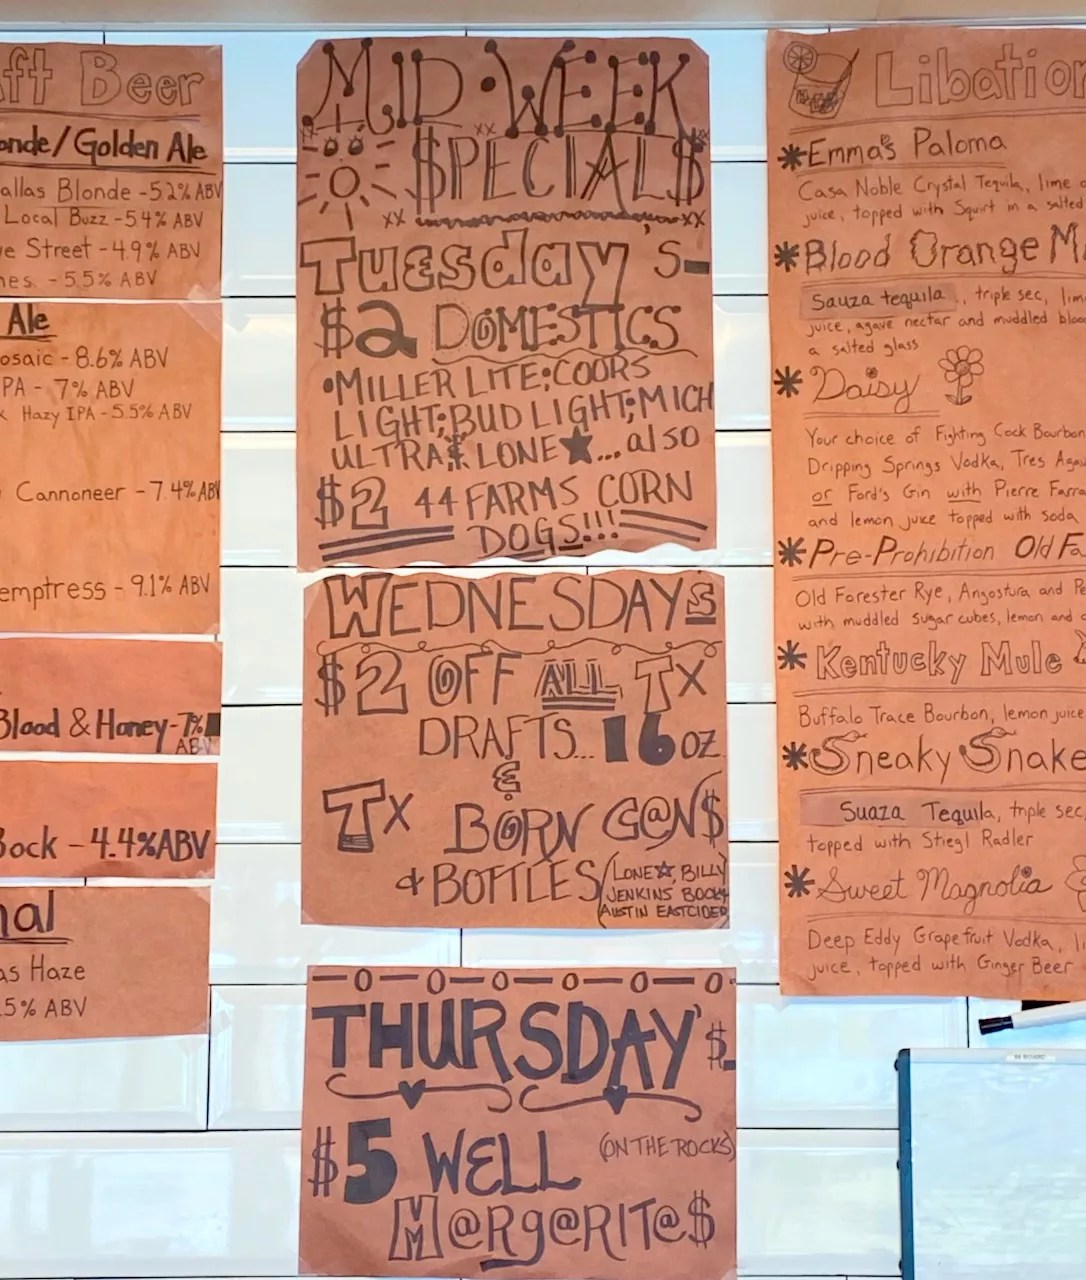 Beer
/Golden Ale
Blonde - 5.2% ABV
Local Buzz - 5.4% ABV
Street - 4.9% ABV
- 5.5% ABV
Ale
- 8.6% ABV
- 7% ABV
Hazy IPA - 5.5% ABV
Cannoneer - 7.4% ABV
- 9.1% ABV
Blood & Honey - 7%
ABV
- 4.4% ABV
Haze
5% ABV
MID-WEEK
$PECIAL$
xx
xx xx
Tuesday's-
$2 DOMESTICS
•MILLER LITE;COORS
LIGHT;BUD LIGHT;MICH
ULTRA& LONE ★...also
$2 44 FARMS CORN
DOGS!!!
WEDNESDAYs
$2 OFF ALL TX
DRAFTS... 16 oz
&
TX BORN C@N$
+ BOTTLES (LONE ☆, BILLY
JENKINS BOCK,
AUSTIN EASTCIDER)
THURSDAY'$-
$5 WELL (ON THE ROCKS)
M@Rg@RIT@$
* Emma's Paloma
Casa Noble Crystal Tequila, lime
juice, topped with Squirt in a salted
* Blood Orange
Sauza tequila, triple sec,
juice, agave nectar and muddled
a salted glass
* Daisy
Your choice of Fighting Cock Bourbon
Dripping Springs Vodka, Tres
or Ford's Gin with Pierre
and lemon juice topped with soda
* Pre-Prohibition Old
Old Forester Rye, Angostura and
with muddled sugar cubes, lemon and
* Kentucky Mule
Buffalo Trace Bourbon, lemon juice
* Sneaky Snake
Suaza Tequila, triple sec,
topped with Stiegl Radler
* Sweet Magnolia
Deep Eddy Grapefruit Vodka,
juice, topped with Ginger Beer